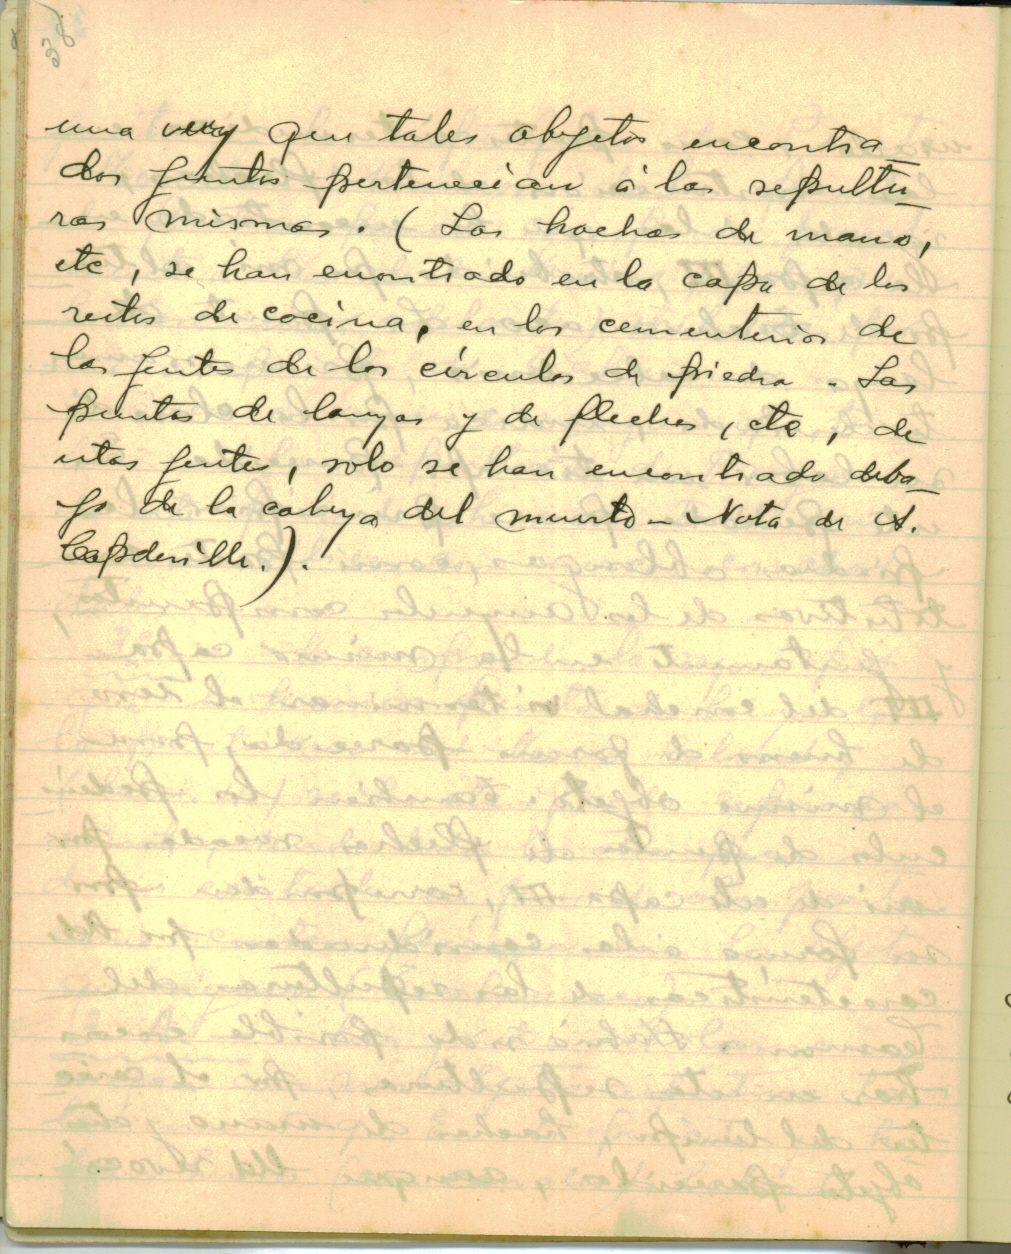 una vez que tales objetos encontra_
dos juntos pertenecian á las sepultu_
ras mismas. (Las hachas de mano,
etc, se han encontrado en la capa de los
restos de cocina, en los cementerios de
las gentes de los círculos de piedra. Las
puntas de lanzas y de flechas, etc, de
estas gentes, solo se han encontrado deba_
jo de la cabeza del muerto - Nota de A.
Capdeville.).